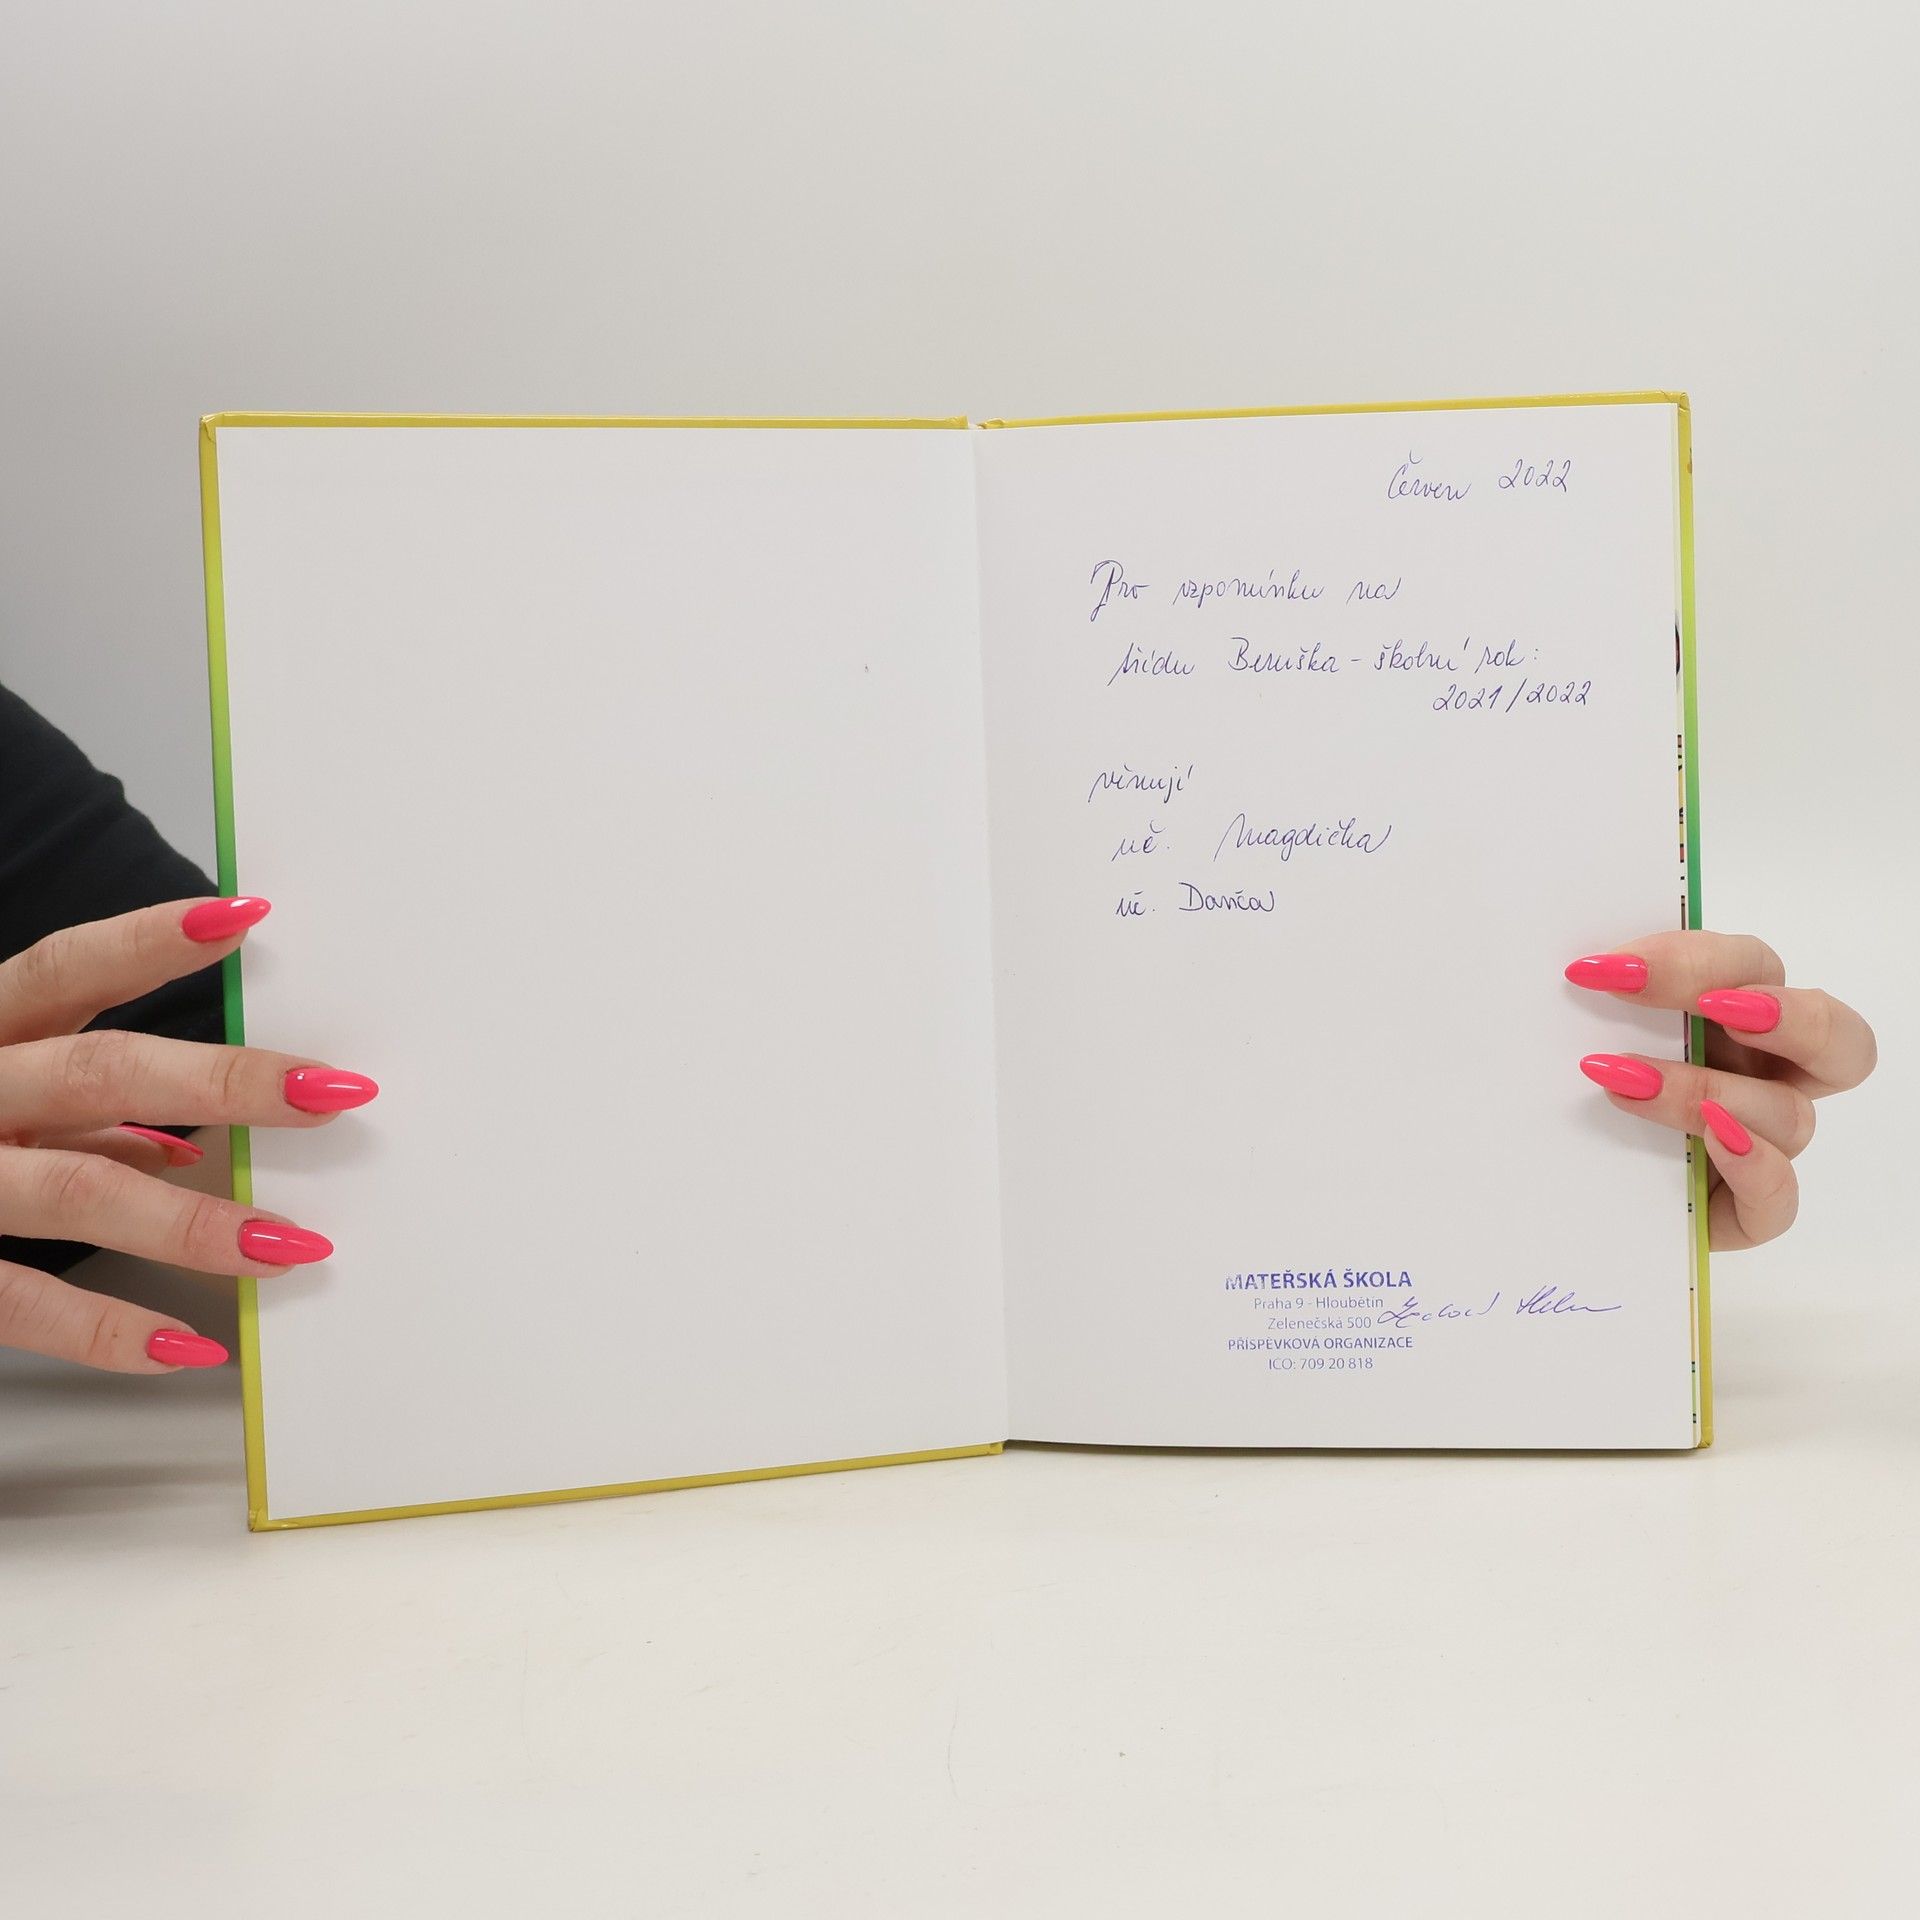 Červen 2022
Pro vzpomínku na
třídu Beruška - školní rok:
2021/2022
věnují
uč. Magdička
uč. Danča
MATEŘSKÁ ŠKOLA
Praha 9 - Hloubětín
Zelenečská 500
PŘÍSPĚVKOVÁ ORGANIZACE
IČO: 709 20 818